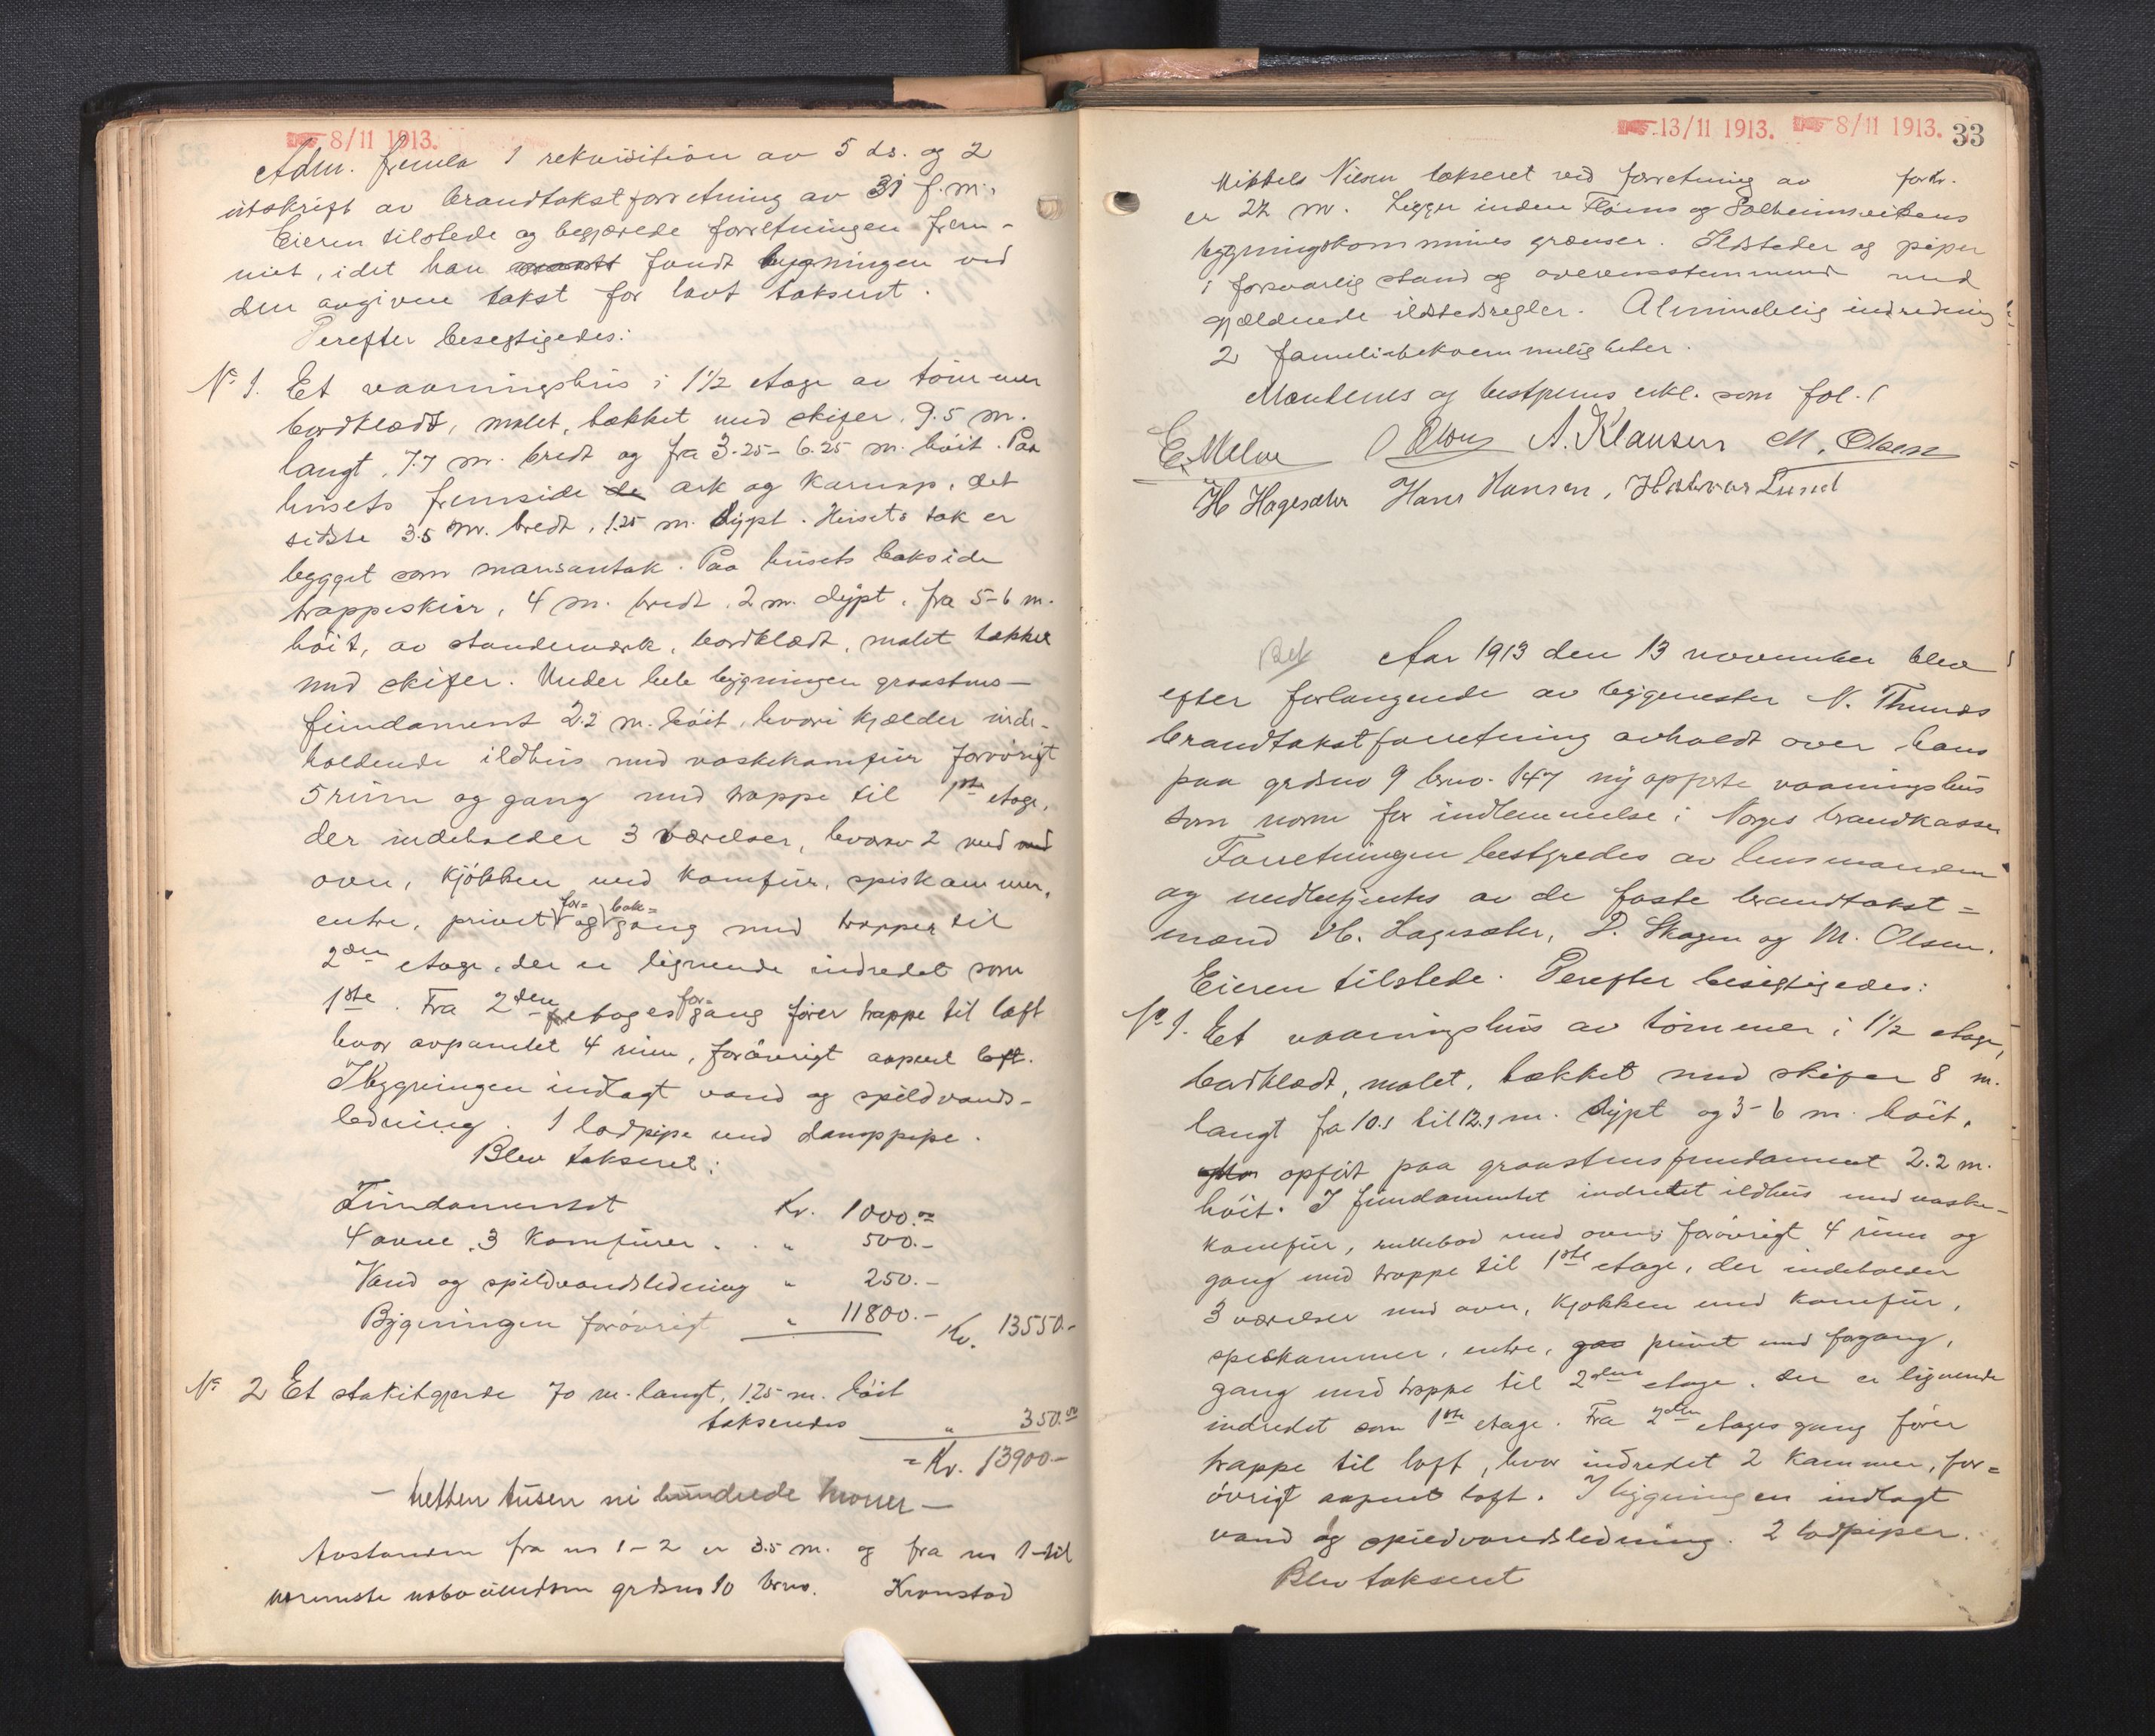 8/11 1913.
Adm. fremla 1 rekvisition av 5 ds. og 2
utskrift av brandtakstforretning av 31 f.m.
Eieren tilstede og begjærede forretningen frem-
met, idet han fandt bygningen ved
den avgivne takst for lavt taksert.
Derefter besegtigedes:
No 1. Et vaaningshus i 1 1/2 etage av tømmer
bordklædt, malet, tækket med skifer, 9.5 m.
langt, 7.7 m. bredt og fra 3.25 - 6.25 m. høit. Paa
husets fremside de ark og karnap, det
sidste 3.5 m. bredt, 1.25 m. dypt. Husets tak er
bygget som mansantak. Paa husets bakside
trappeskur, 4 m. bredt, 2 m. dypt, fra 5-6 m.
høit, av standerværk, bordklædt, malet tækket
med skifer. Under hele bygningen graastens-
fundament 2.2 m. høit, hvori kjælder inde-
holdende ildhus med vaskekomfur forøvrigt
5 rum og gang med trappe til 1ste etage,
der indeholder 3 værelser, hvorav 2 med
ovn, kjøkken med komfur, spiskammer,
entre, privet for= og bak= gang med trapper til
2den etage, der er lignende indredet som
1ste. Fra 2den etages for= gang fører trappe til loft
hvor avpanelet 4 rum, forøvrigt aapent loft.
I bygningen indlagt vand og spildvands-
ledning. 1 lodpipe med damppipe.
Blev takseret:
Fundamentet Kr. 1000.-
4 ovne, 3 komfurer . . " 500.-
Vand og spildvandsledning " 250.-
Bygningen forøvrigt " 11800.- Kr. 13550.-
No 2 Et stakitgjærde 70 m. langt, 1.25 m. høit
takseredes " 350.00
= Kr. 13900.-
- tretten tusen ni hundrede kroner -
Avstanden fra no 1-2 er 3.5 m. og fra no 1 til
nærmeste naboeiendom grdsno 10 brno. Kronstad
13/11 1913. 8/11 1913. 33
Mikkels Nilsen takseret ved forretning av forh.
er 22 m. Ligger inden Fløens og Solheimsvikens
bygningskommunes grænser. Ildsteder og piper
i forsvarlig stand og overensstemmende med
gjældende ildstedsregler. Almindelig indredning
2 familiebekvemmeligheter.
Mændenes og bestyrens erkl. som fol. 1
E. Melve O Olsen A. Klausen M. Olsen
H Hagesæter Hans Hansen, Halvor Lund
Aar 1913 den 13 november blev
efter forlangende av bygmester N. Thunes
brandtakstforretning avholdt over hans
paa grdsno 9 brno. 147 ny opførte vaaningshus
som norm for indlemmelse i Norges brandkasse
Forretningen bestyredes av lensmanden
og medbetjentes av de faste brandtakst=
mænd H. Hagesæter, P. Skagen og M. Olsen.
Eieren tilstede. Derefter besegtigedes:
No 1. Et vaaningshus av tømmer i 1 1/2 etage,
bordklædt, malet, tækket med skifer 8 m.
langt fra 10.1 til 12.1 m. dypt og 3-6 m. høit,
opført paa graastensfundament 2.2 m.
høit. I fundamentet indredet ildhus med vaske-
komfur, rullebod med ovn, forøvrigt 4 rum og
gang med trappe til 1ste etage, der indeholder
3 værelser med ovn, kjøkken med komfur,
speskammer, entre, privet med forgang,
gang med trappe til 2den etage, der er lignende
indredet som 1ste etage. Fra 2den etages gang fører
trappe til loft, hvor indredet 2 kammer, for=
øvrigt aapent loft. I bygningen indlagt
vand og spildvandsledning. 2 lodpiper.
Blev takseret